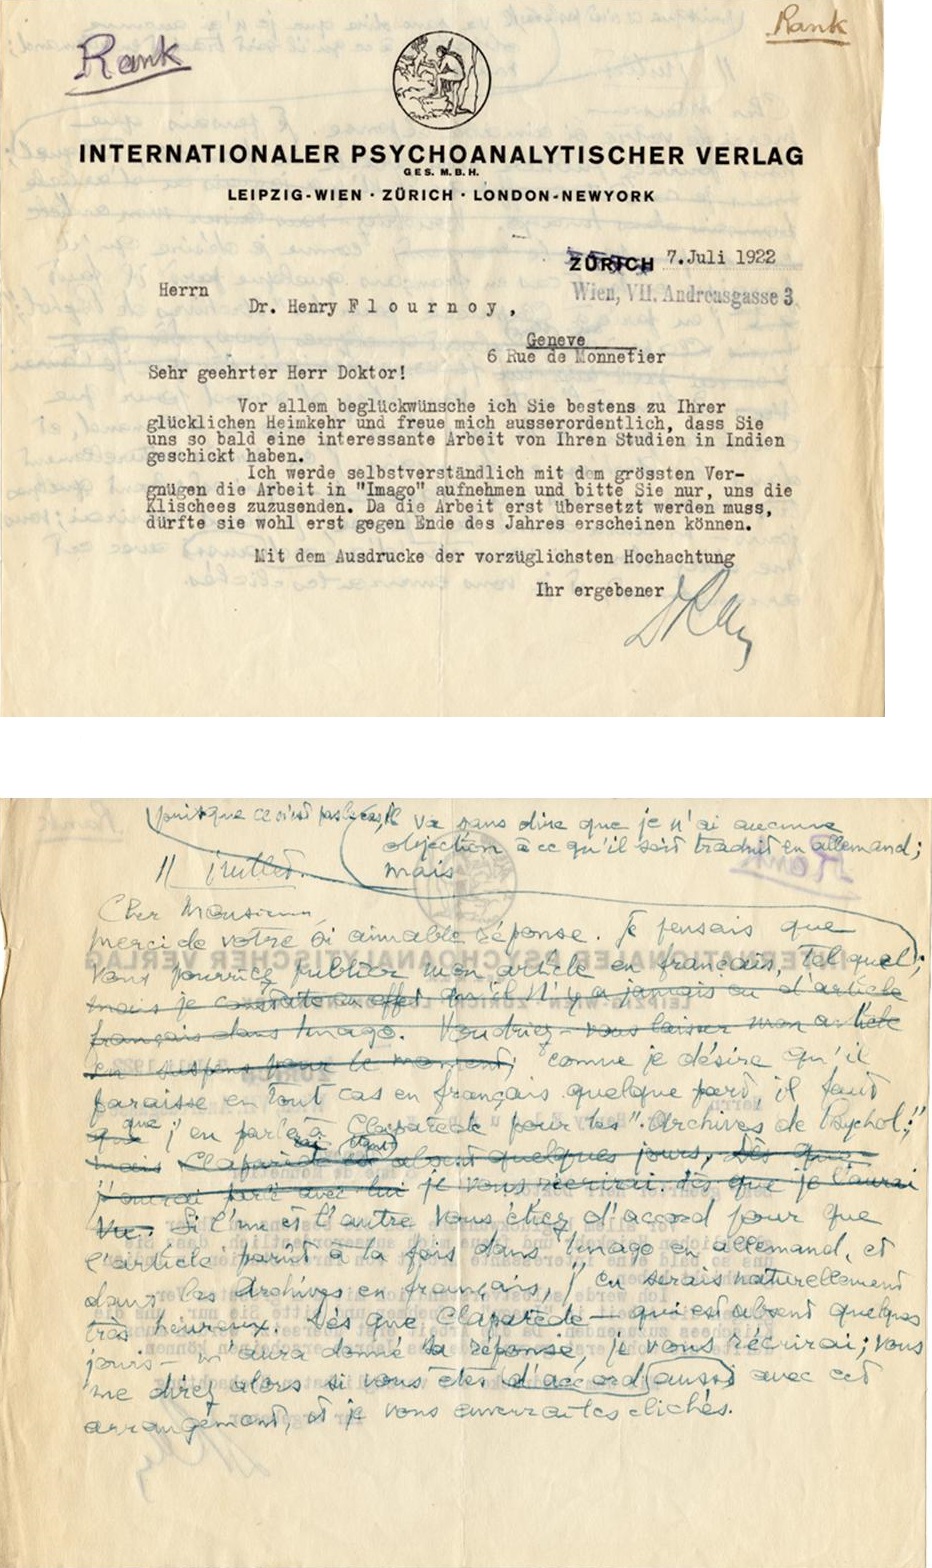 Rank
Rank
INTERNATIONALER PSYCHOANALYTISCHER VERLAG
GES. M. B. H.
LEIPZIG-WIEN · ZÜRICH · LONDON-NEWYORK
ZÜRICH 7.Juli 1922
Wien, VII. Andreasgasse 3
Herrn
Dr. Henry F l o u r n o y ,
Geneve
6 Rue de Monnetier
Sehr geehrter Herr Doktor!
Vor allem beglückwünsche ich Sie bestens zu Ihrer
glücklichen Heimkehr und freue mich ausserordentlich, dass Sie
uns so bald eine interessante Arbeit von Ihren Studien in Indien
geschickt haben.
Ich werde selbstverständlich mit dem grössten Ver-
gnügen die Arbeit in "Imago" aufnehmen und bitte Sie nur, uns die
Klischees zuzusenden. Da die Arbeit erst übersetzt werden muss,
dürfte sie wohl erst gegen Ende des Jahres erscheinen können.
Mit dem Ausdrucke der vorzüglichsten Hochachtung
Ihr ergebener
puisque ce n'est pas le cas, Il va sans dire que je n'ai aucune
objection à ce qu'il soit traduit en allemand;
mais
11 juillet.
Cher Monsieur,
Merci de votre si aimable réponse. Je pensais que
vous pourriez publier mon article en français, tel quel;
mais je constate en effet qu'il n'y a jamais eu d'article
français dans Imago. Voudriez-vous laisser mon article
en suspens pour le moment; comme je désire qu'il
paraisse en tout cas en français quelque part, il faut
que j'en parle à Claparède pour les "Archives de Psychol;"
mais Claparède est absent quelques jours, Dès que
j'aurai parlé avec lui je vous récrirai. dès que je l'aurai
vu. Si l'un et l'autre vous étiez d'accord pour que
l'article parût à la fois dans Imago en allemand, et
dans les Archives en français, j'en serais naturellement
très heureux. Dès que Claparède – qui est absent quelques
jours – m'aura donné sa réponse, je vous récrirai; vous
me direz alors si vous êtes d'accord aussi avec cet
arrangement, et je vous enverrai les clichés.